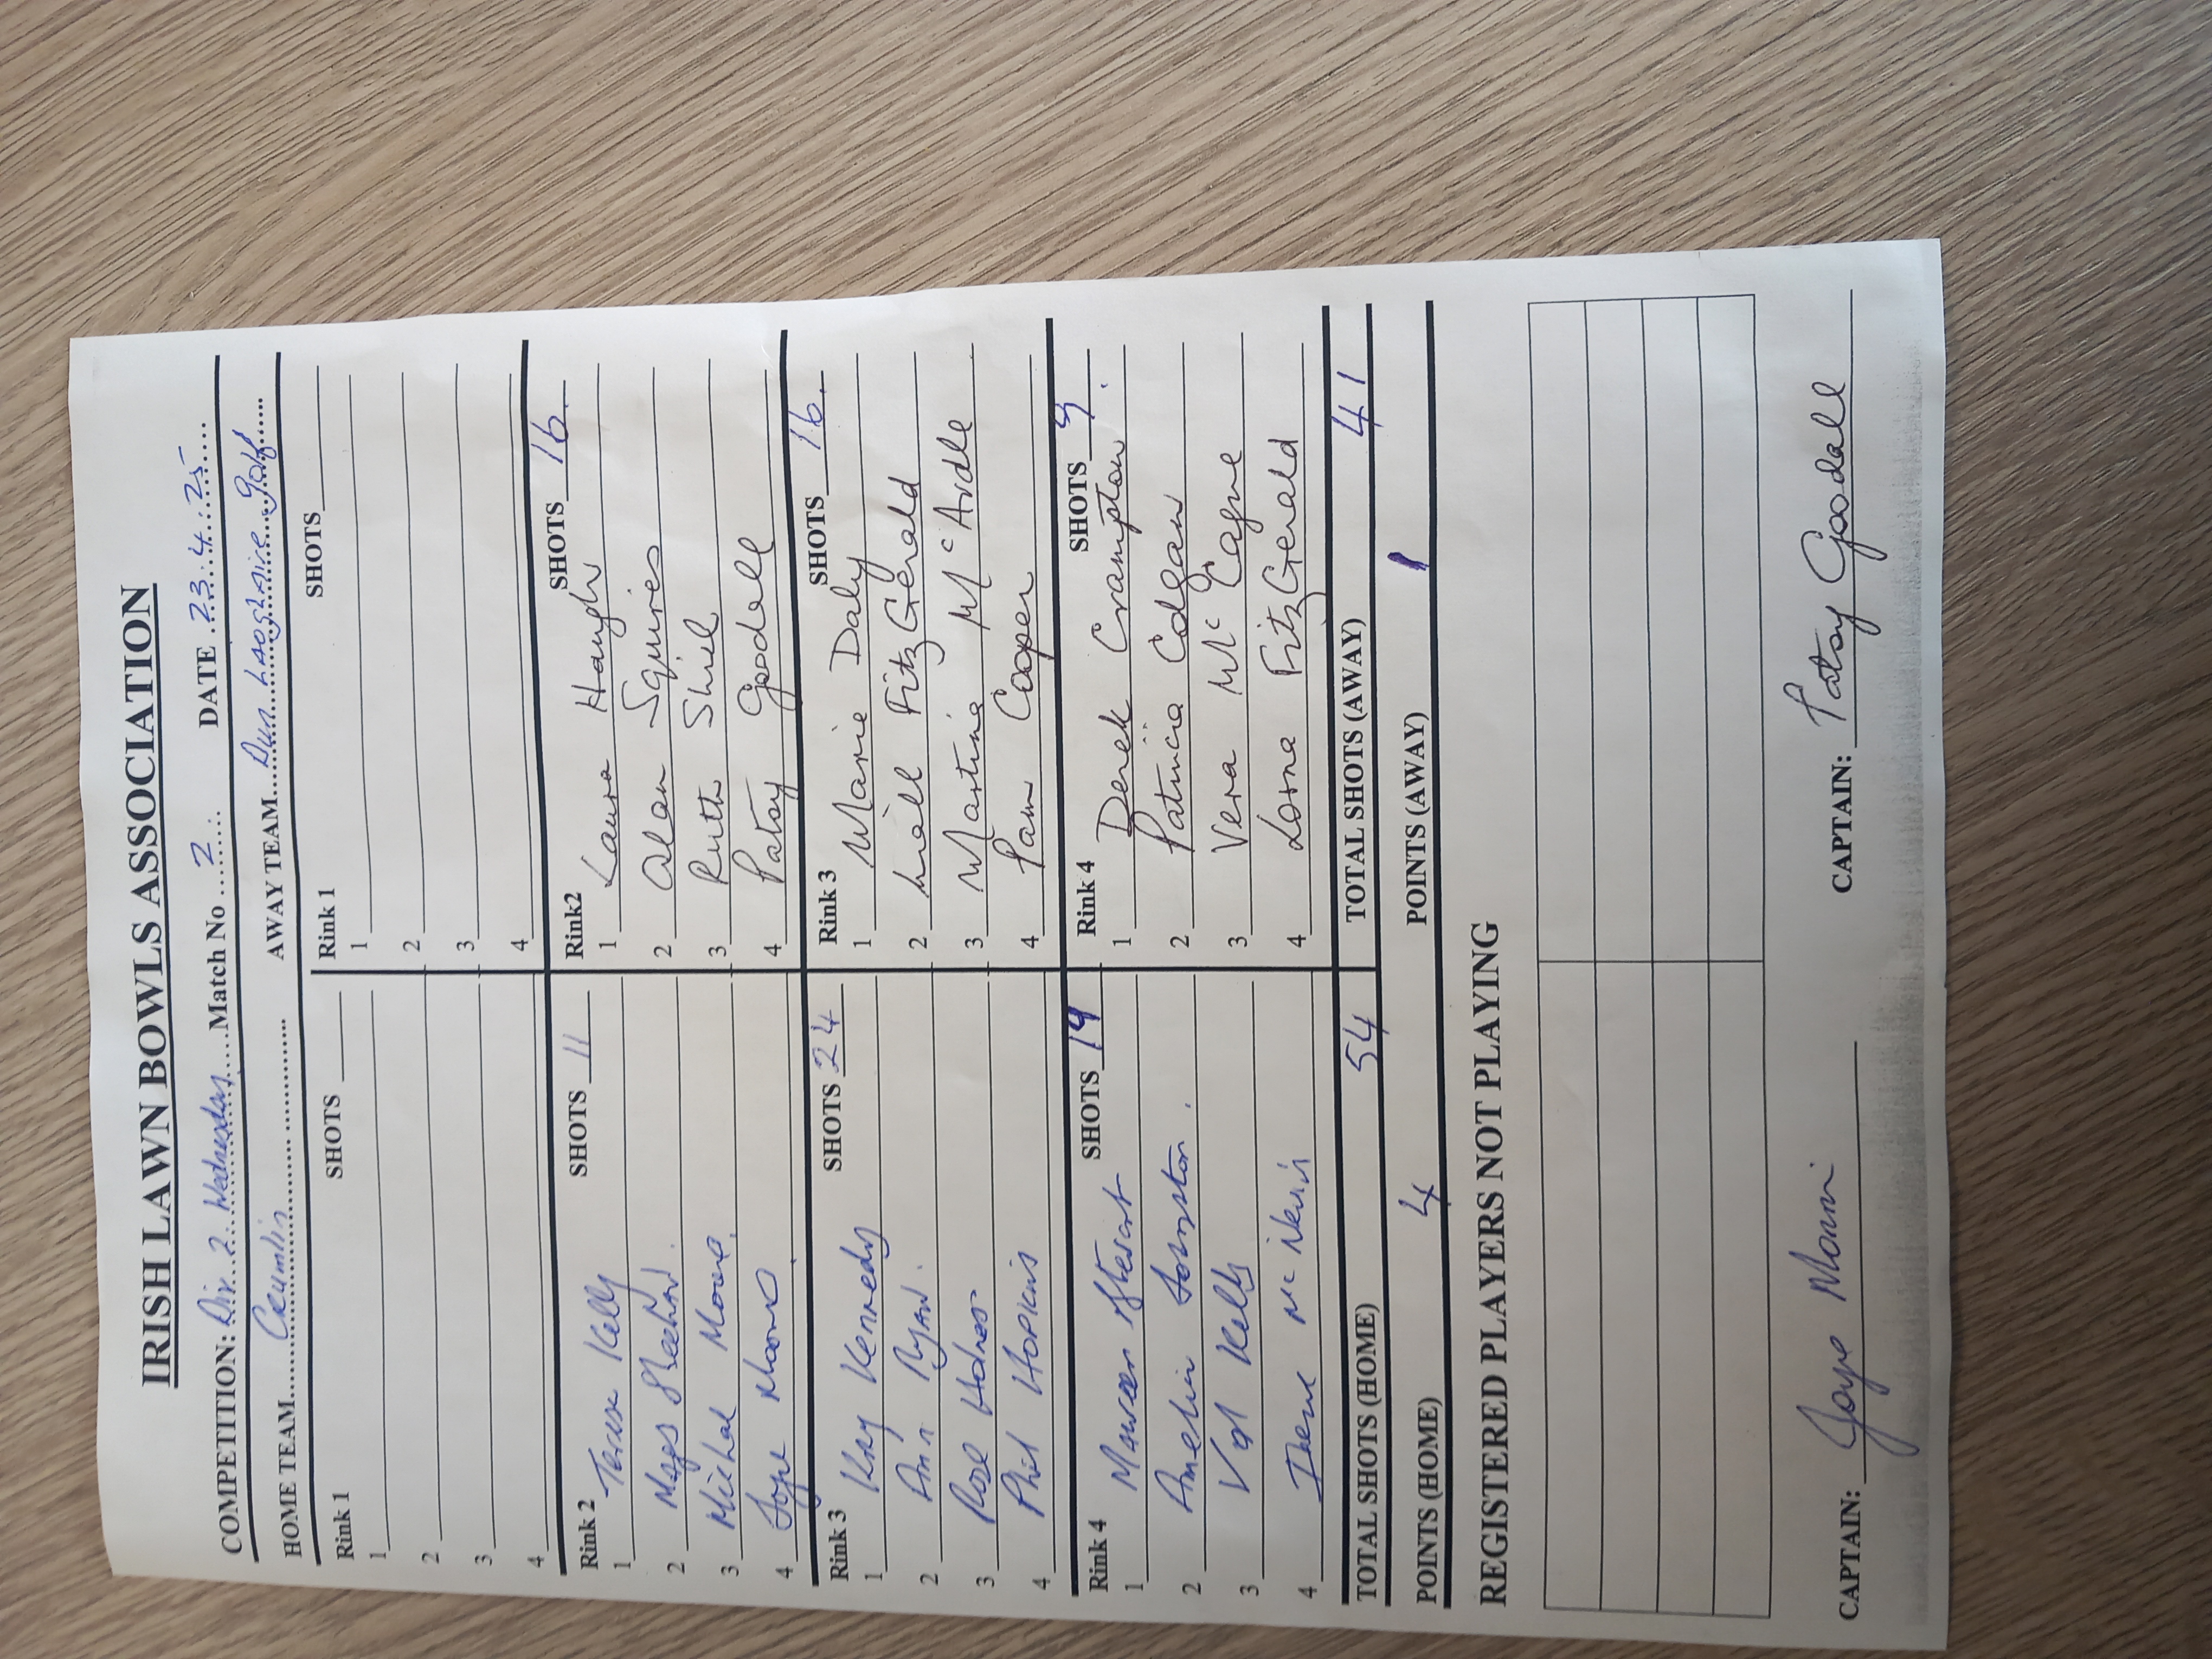 IRISH LAWN BOWLS ASSOCIATION
COMPETITION: Div. 2 Wednesday Match No 2 DATE 23.4.25
HOME TEAM Crumlin AWAY TEAM Dun Laoghaire Golf
Rink 1 SHOTS Rink 1 SHOTS
1 1
2 2
3 3
4 4
Rink 2 SHOTS 11 Rink2 SHOTS 16.
1 Terese Kelly 1 Laura Haugh
2 Mags Sheehan. 2 Alan Squires
3 Michael Moore. 3 Ruth Shiel
4 Joye 4 Patsy Goodall
Rink 3 SHOTS 24 Rink 3 SHOTS 16.
1 Kay Kennedy 1 Marie Daly
2 Ann Ryan. 2 Niall FitzGerald
3 Rose 3 Martina McArdle
4 Phil Hopkins 4 Pam Cooper
Rink 4 SHOTS 19 Rink 4 SHOTS 9.
1 Maureen Stewart 1 Derek Crampton
2 Johnston. 2 Patricia Colgan
3 Val Kelly 3 Vera Mc Cagne
4 Irene Mc Nevin 4 Lorna FitzGerald
TOTAL SHOTS (HOME) 54 TOTAL SHOTS (AWAY) 41
POINTS (HOME) 4 POINTS (AWAY) 1
REGISTERED PLAYERS NOT PLAYING
CAPTAIN: Joye CAPTAIN: Patsy Goodall